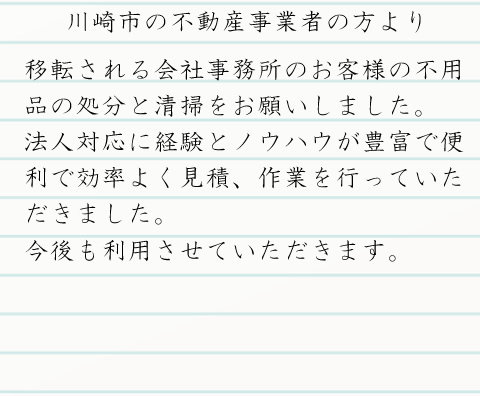 川崎市の不動産事業者の方より
移転される会社事務所のお客様の不用
品の処分と清掃をお願いしました。
法人対応に経験とノウハウが豊富で便
利で効率よく見積、作業を行っていた
だきました。
今後も利用させていただきます。